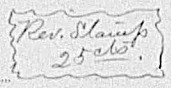 Rev. Stamp
25 cts.